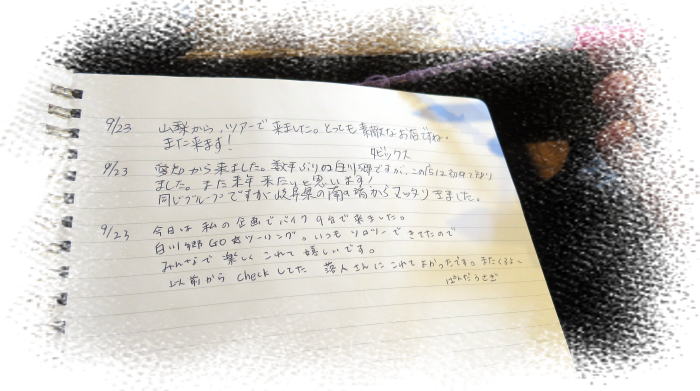 9/23 山梨から、ツアーで来ました。とっても素敵なお店ですね。
また来ます!
9/23 から来ました。数年ぶりの白川郷ですが、この
ました。また来年来たいと思います!
同じグループですが岐阜県の南端からマッタリきました。
9/23 今日は私の企画でバイク9台で来ました。
白川郷GO☆ツーリング。いつもソロツーできてたので
みんなで楽しくこれて嬉しいです。
以前からcheckしてた 落人さんにこれてよかったです。またくるよ〜
ぱんだうさぎ